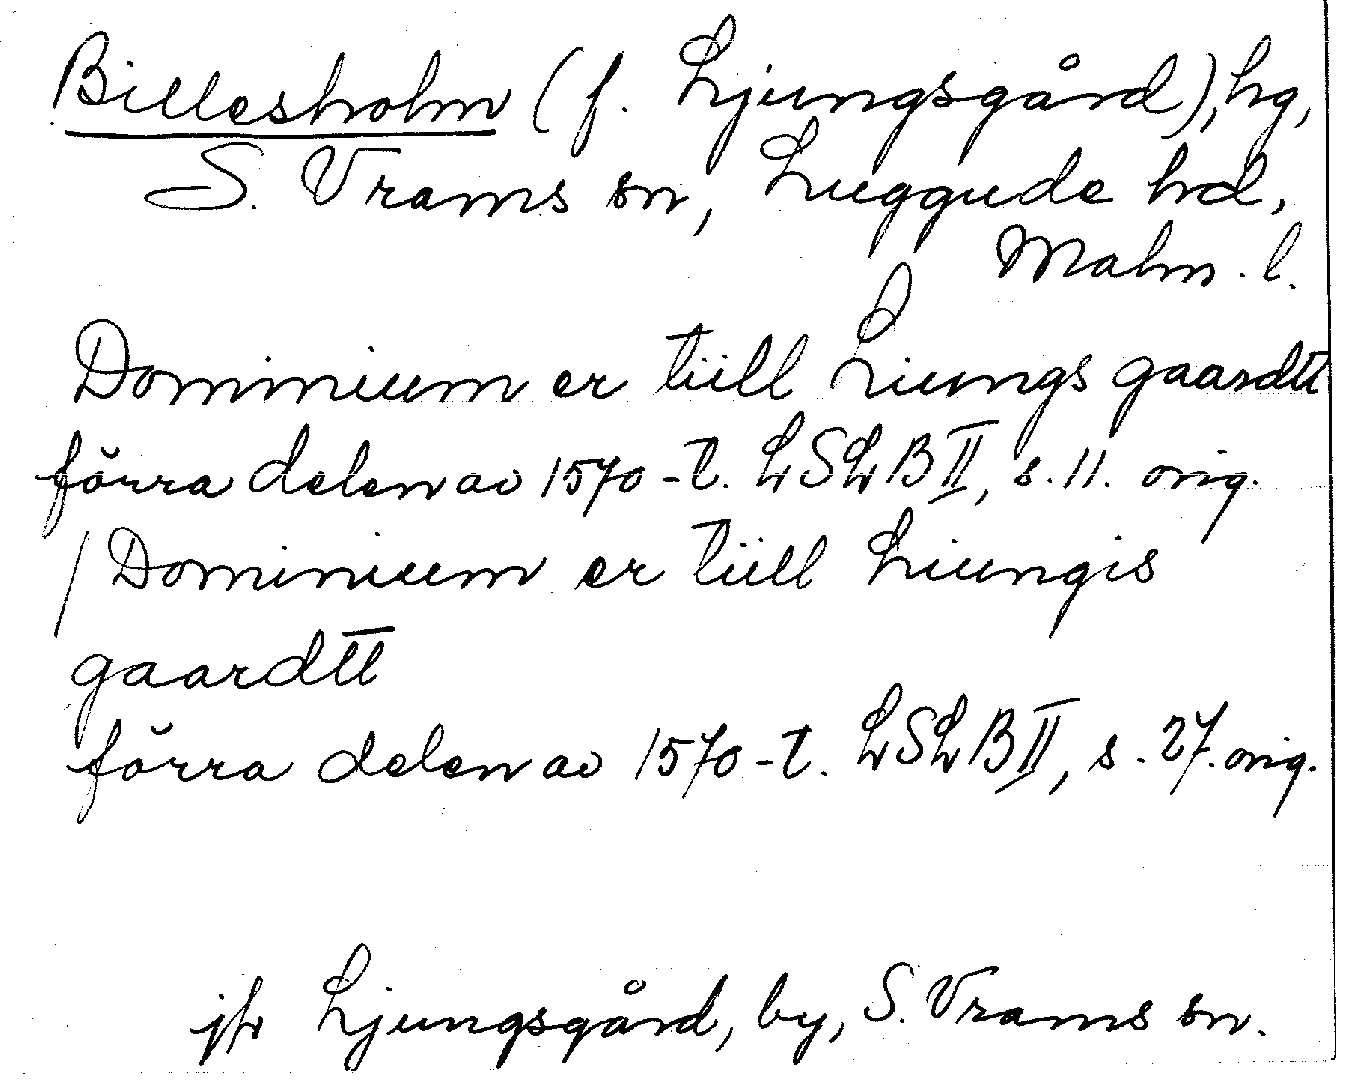 Billesholm (f. Ljungsgård), hg,
S. Vrams sn, Luggude hd,
Malm. l.
Dominium er tiill Liungs gaardtt
förra delen av 1570-t. LSLB II, s. 11. orig.
/ Dominium er tiill Liungis
gaardtt
förra delen av 1570-t. LSLB II, s. 27. orig.
jfr Ljungsgård, by, S. Vrams sn.